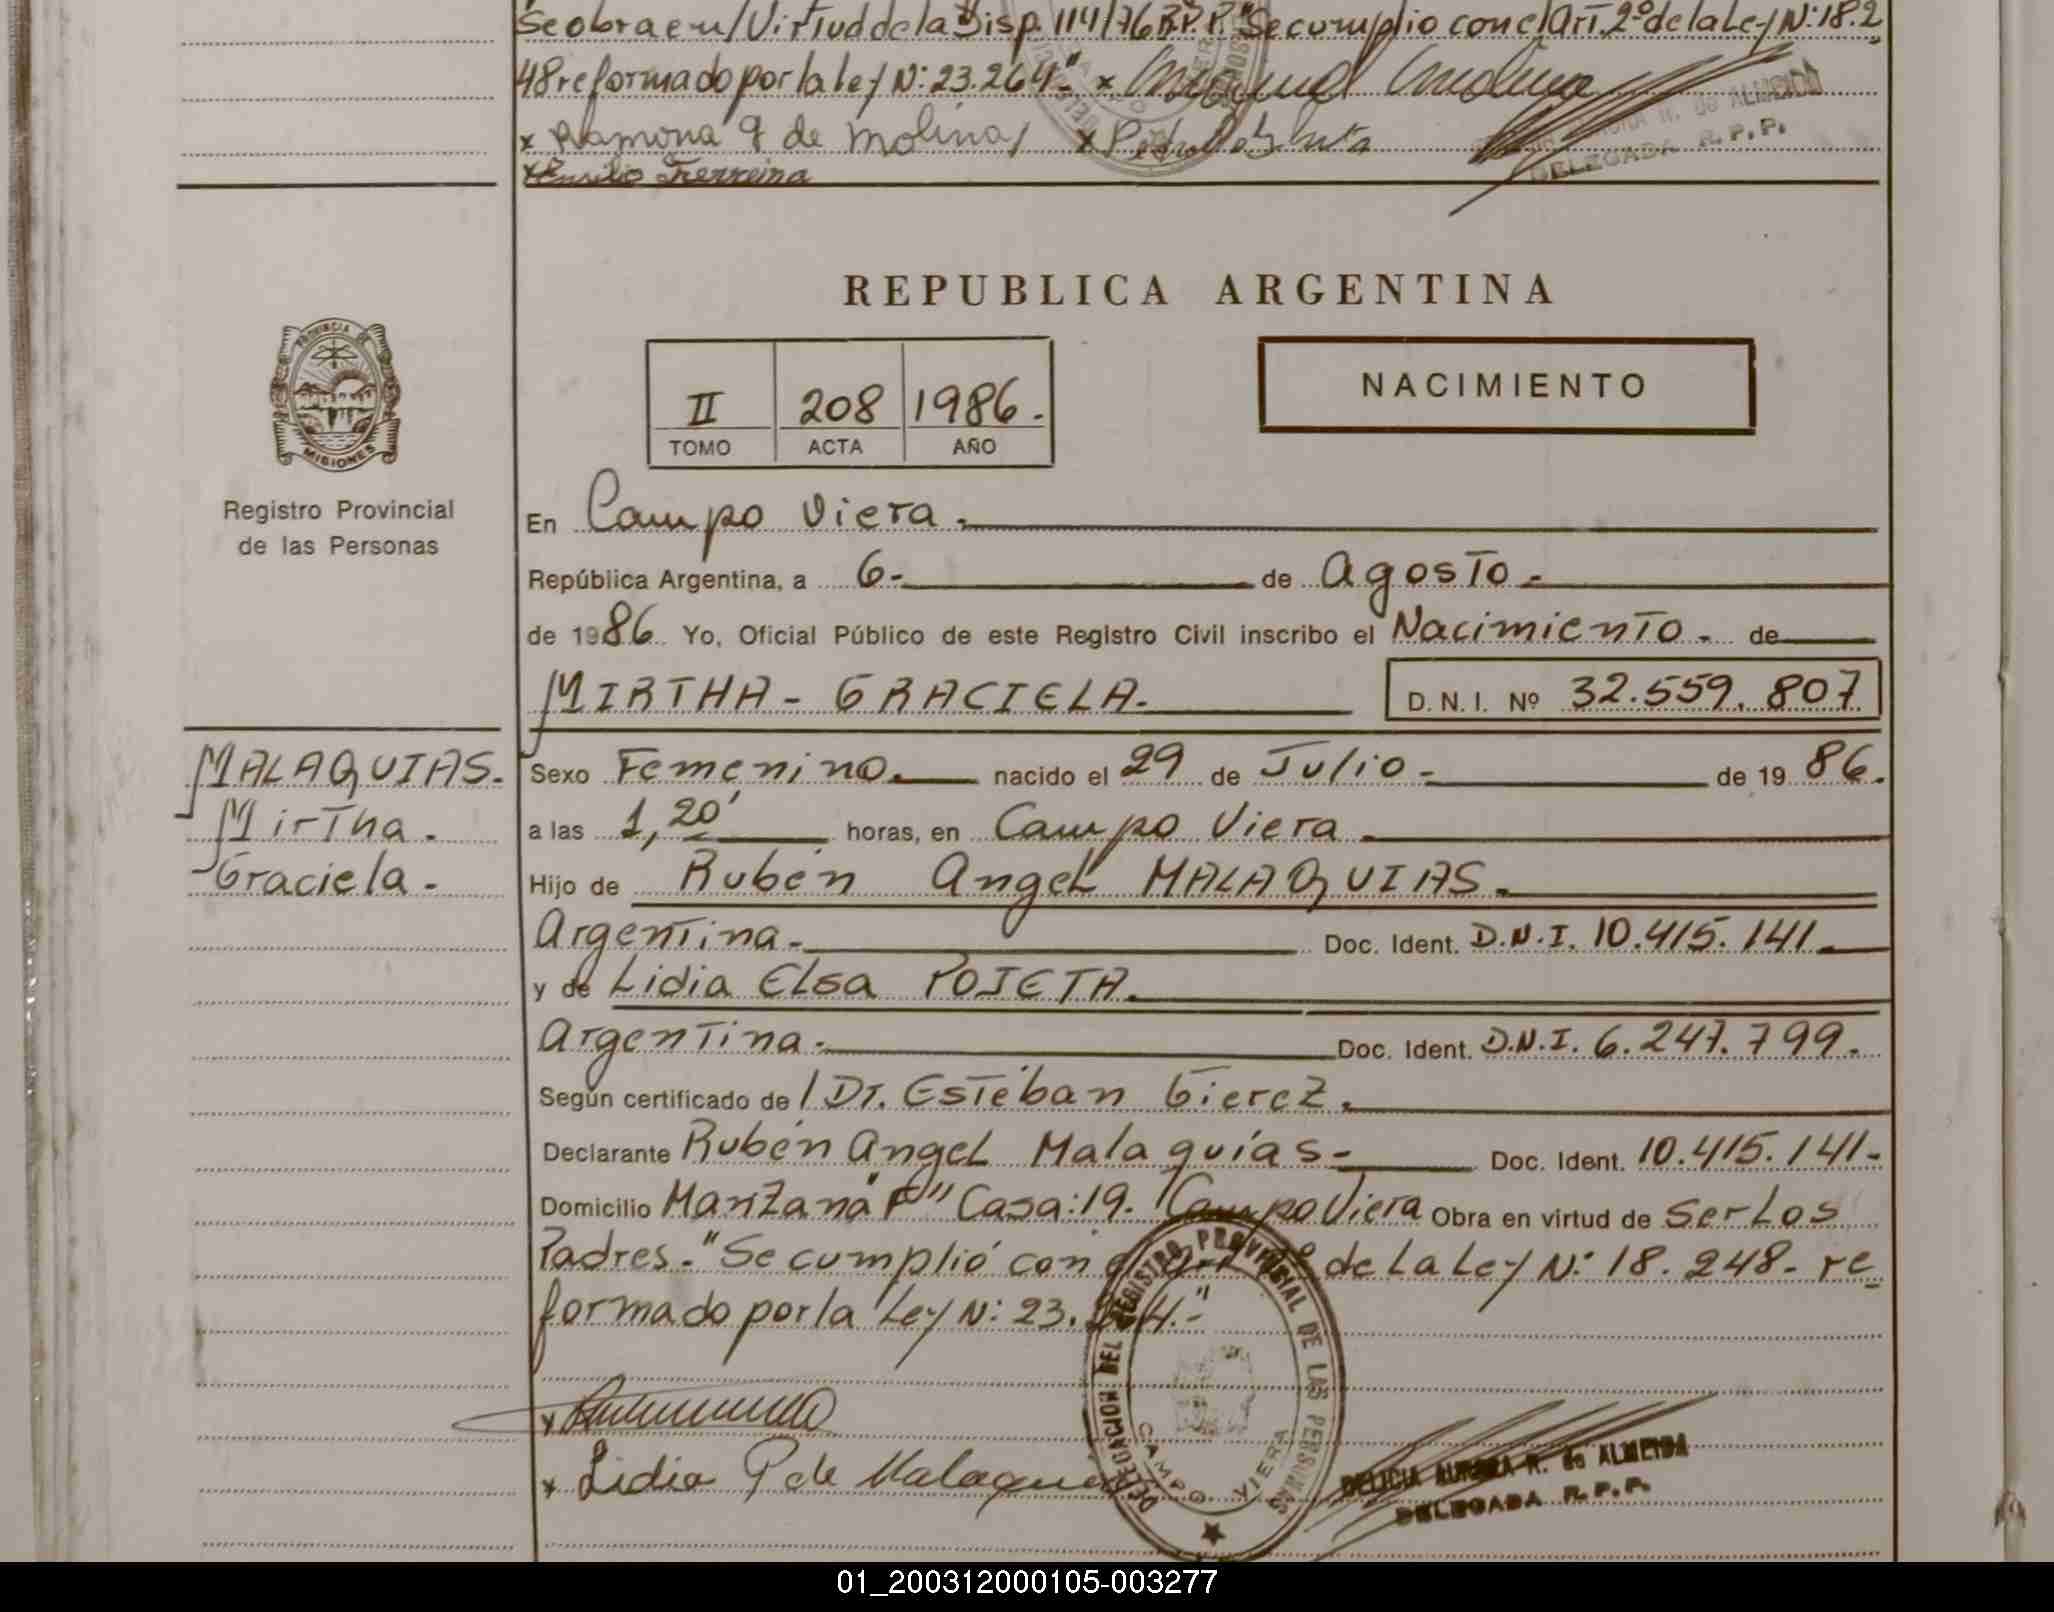 Se obra en/Virtud de la Disp. 114/76 R.P.P. "Se cumplio con el Art. 2º de la Ley N: 18.2
48 reformado por la Ley N: 23.264." x
x Ramona G de Molina x Pedro
x Emilio Ferreira
DE ALMEIDA
DELEGADA R.P.P.
REPUBLICA ARGENTINA
PROVINCIA DE
MISIONES
Registro Provincial
de las Personas
II 208 1986.-
TOMO ACTA AÑO
NACIMIENTO
En Campo Viera.-
República Argentina, a 6- de Agosto.-
de 1986 Yo, Oficial Público de este Registro Civil inscribo el Nacimiento.- de
MIRTHA - GRACIELA.- D.N.I. Nº 32.559.807
MALAQUIAS.
Mirtha.
Graciela.-
Sexo Femenino. nacido el 29 de Julio.- de 1986.
a las 1,20' horas, en Campo Viera.
Hijo de Rubén Angel MALAQUIAS.
Argentina.- Doc. Ident. D.N.I. 10.415.141.
y de Lidia Elsa POJETA.
Argentina.- Doc. Ident. D.N.I. 6.247.799.
Según certificado de / Dr. Esteban Gierez.
Declarante Rubén Angel Malaquías- Doc. Ident. 10.415.141-
Domicilio Manzana "F" Casa: 19. Campo Viera Obra en virtud de Ser Los
Padres.- "Se cumplió con el Art 2º de La Ley N: 18.248- re
formado por la Ley N: 23.264.-"
x
x Lidia P de Malaquias
DELEGACION DEL REGISTRO PROVINCIAL DE LAS PERSONAS
CAMPO VIERA
DELICIA AURORA R. de ALMEIDA
DELEGADA R.P.P.
01_200312000105-003277